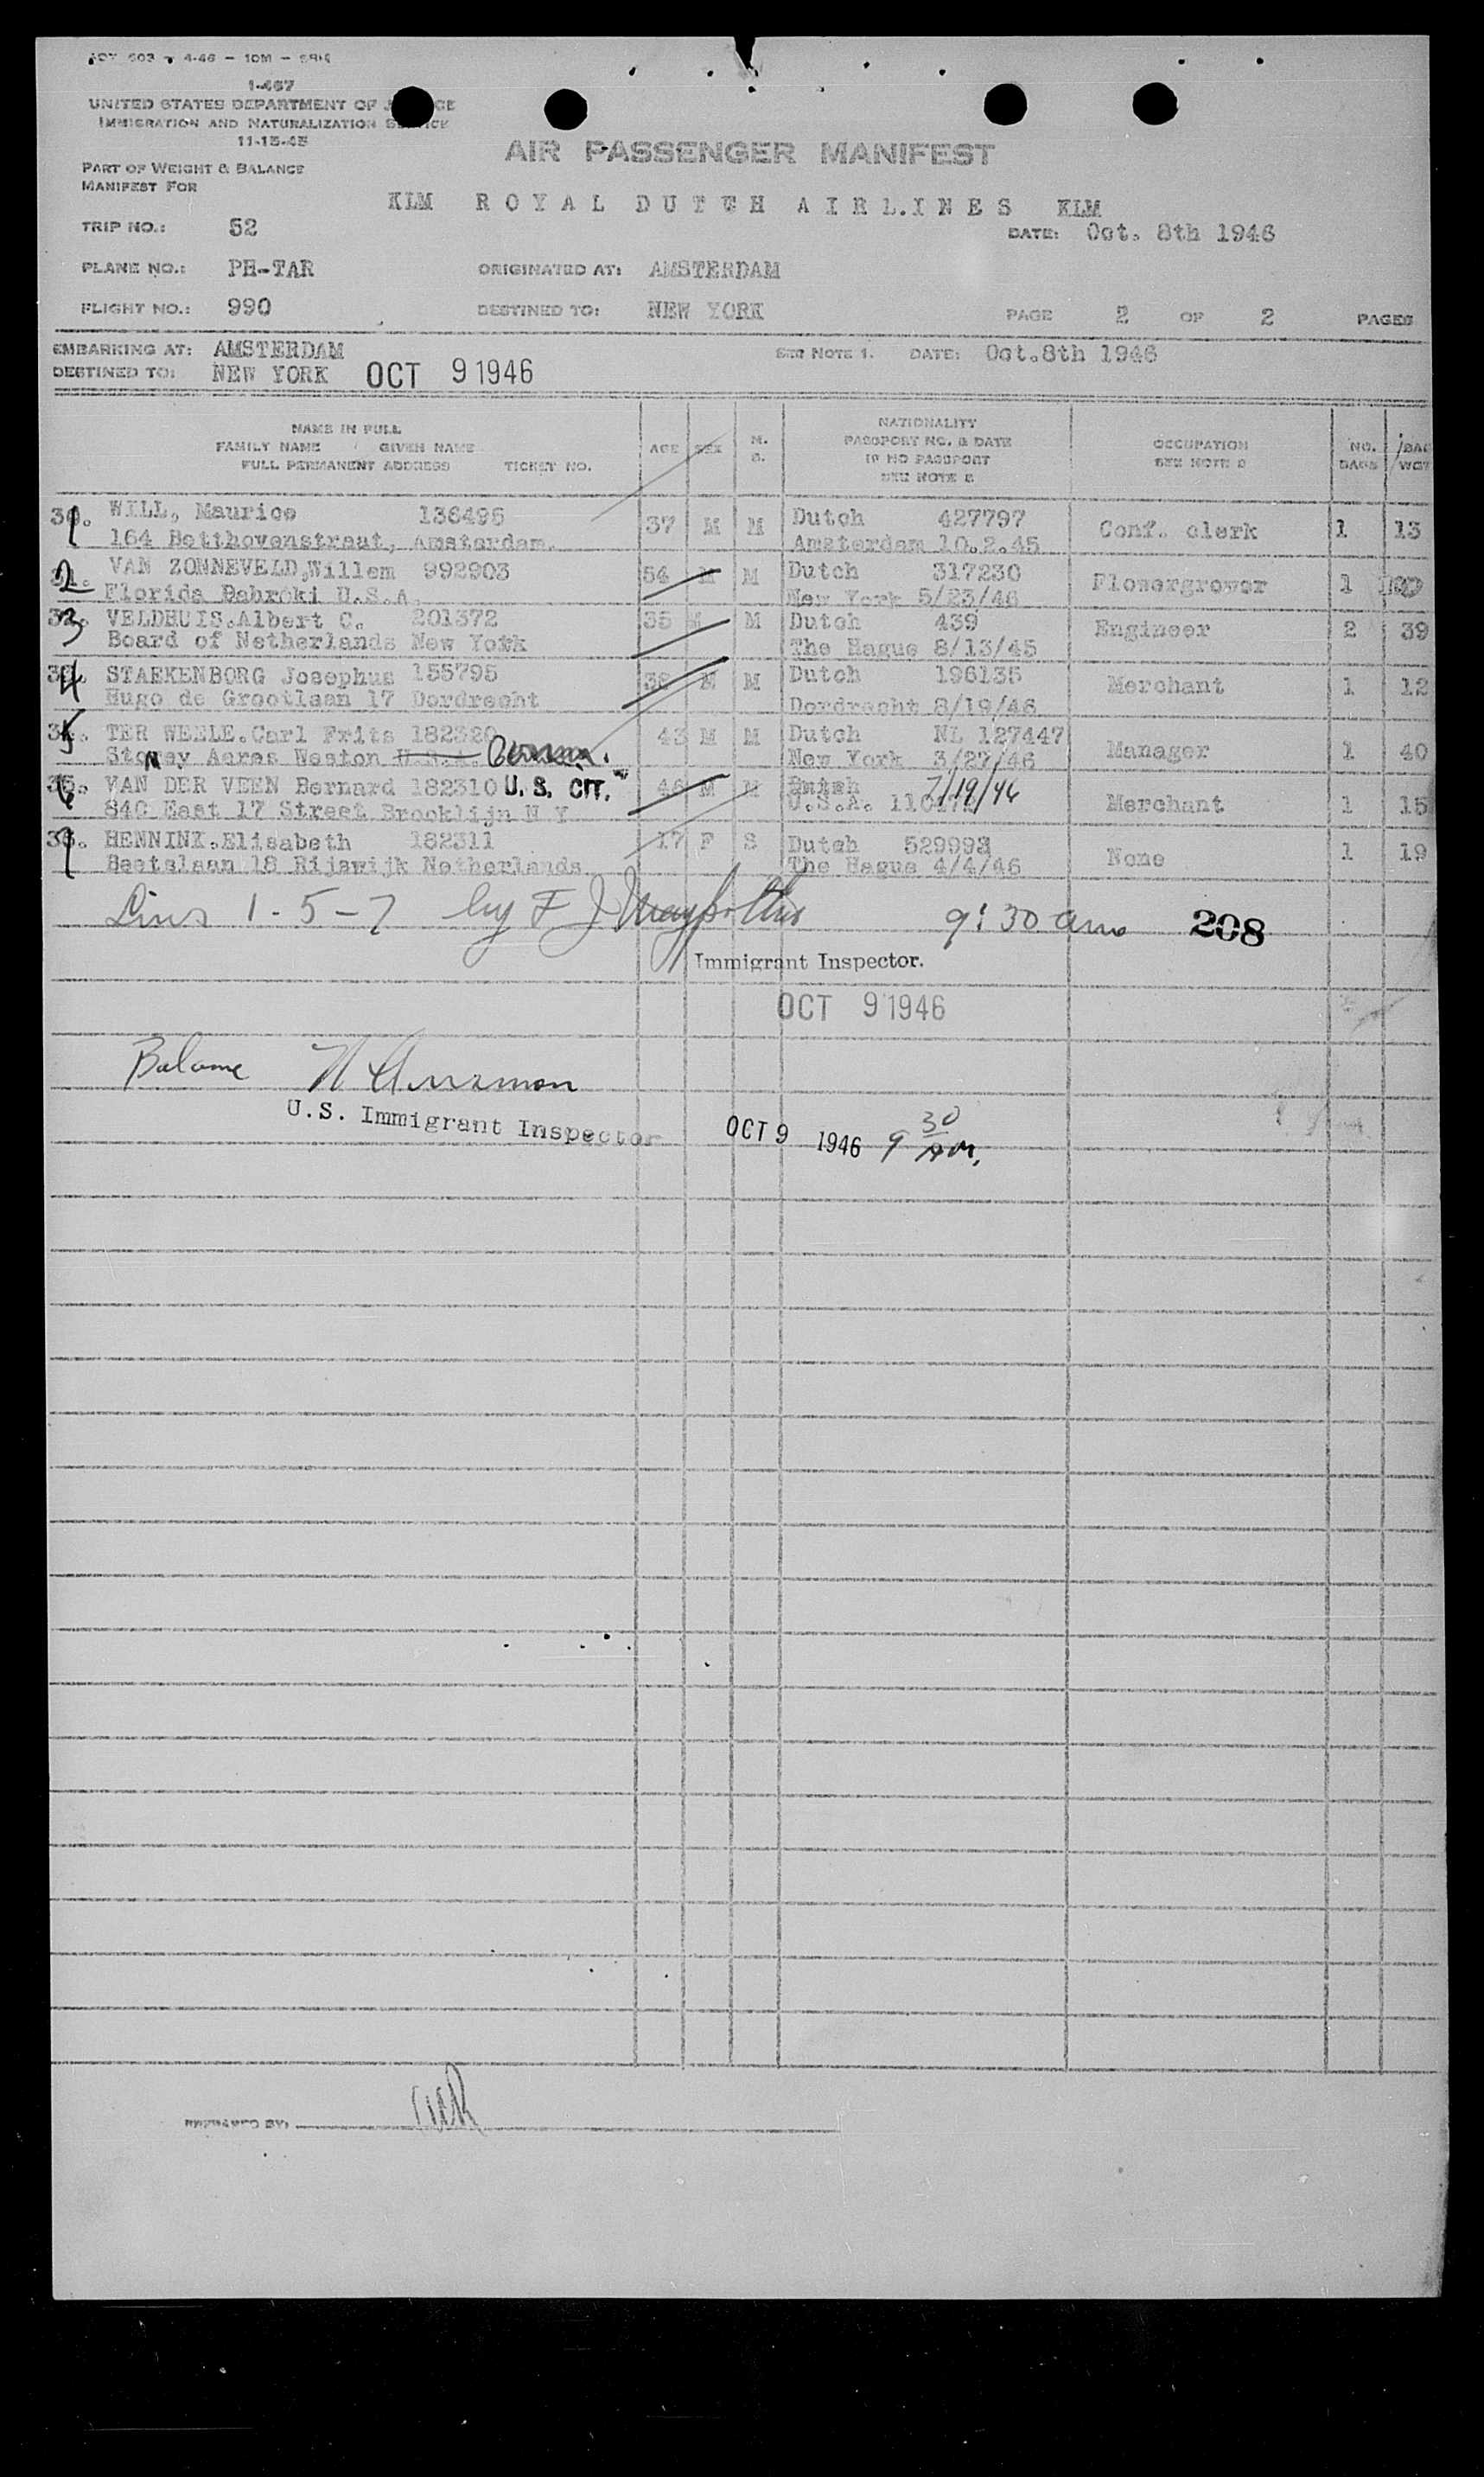 1-467
UNITED STATES DEPARTMENT OF J CE
IMMIGRATION AND NATURALIZATION SE ICE
11-15-45
AIR PASSENGER MANIFEST
PART OF WEIGHT & BALANCE
MANIFEST FOR
KLM ROYAL DUTCH AIRLINES KLM
TRIP NO.: 52 DATE: Oct. 8th 1946
PLANE NO.: PH-TAR ORIGINATED AT: AMSTERDAM
FLIGHT NO.: 990 DESTINED TO: NEW YORK PAGE 2 OF 2 PAGES
EMBARKING AT: AMSTERDAM SEE NOTE 1. DATE: Oct.8th 1946
DESTINED TO: NEW YORK OCT 9 1946
NAME IN FULL
FAMILY NAME GIVEN NAME
FULL PERMANENT ADDRESS TICKET NO.
AGE SEX M. S.
NATIONALITY
PASSPORT NO. & DATE
IF NO PASSPORT
SEE NOTE 2
OCCUPATION
SEE NOTE 3
NO. BAGS
BAG WGT
1 WILL, Maurice 136495 37 M M Dutch 427797 Conf. clerk 1 13
164 Betthovenstraat, Amsterdam. Amsterdam 10.2.45
2 VAN ZONNEVELD,Willem 992903 54 M M Dutch 317230 Flowergrower 1
Florida U.S.A. New York 5/23/46
3 VELDHUIS.Albert C. 201372 35 M M Dutch 439 Engineer 2 39
Board of Netherlands New York The Hague 8/13/45
4 STAEKENBORG Josephus 155795 38 M M Dutch 196135 Merchant 1 12
Hugo de Grootlaan 17 Dordrecht Dordrecht 8/19/46
5 TER WEELE.Carl Frits 182320 43 M M Dutch NL 127447 Manager 1 40
Acres Weston U.S.A. New York 3/27/46
6 VAN DER VEEN Bernard 182310 U.S. CIT. 46 M M Dutch 7/19/46 Merchant 1 15
840 East 17 Street Brooklijn N Y U.S.A.
7 HENNINK.Elisabeth 182311 17 F S Dutch None 1 19
Beetslaan 18 Rijswijk Netherlands The Hague 4/4/46
Lines 1-5-7 by F J 9:30 am 208
Immigrant Inspector.
OCT 9 1946
Balance
U.S. Immigrant Inspector OCT 9 1946 9 30 AM.
PREPARED BY: